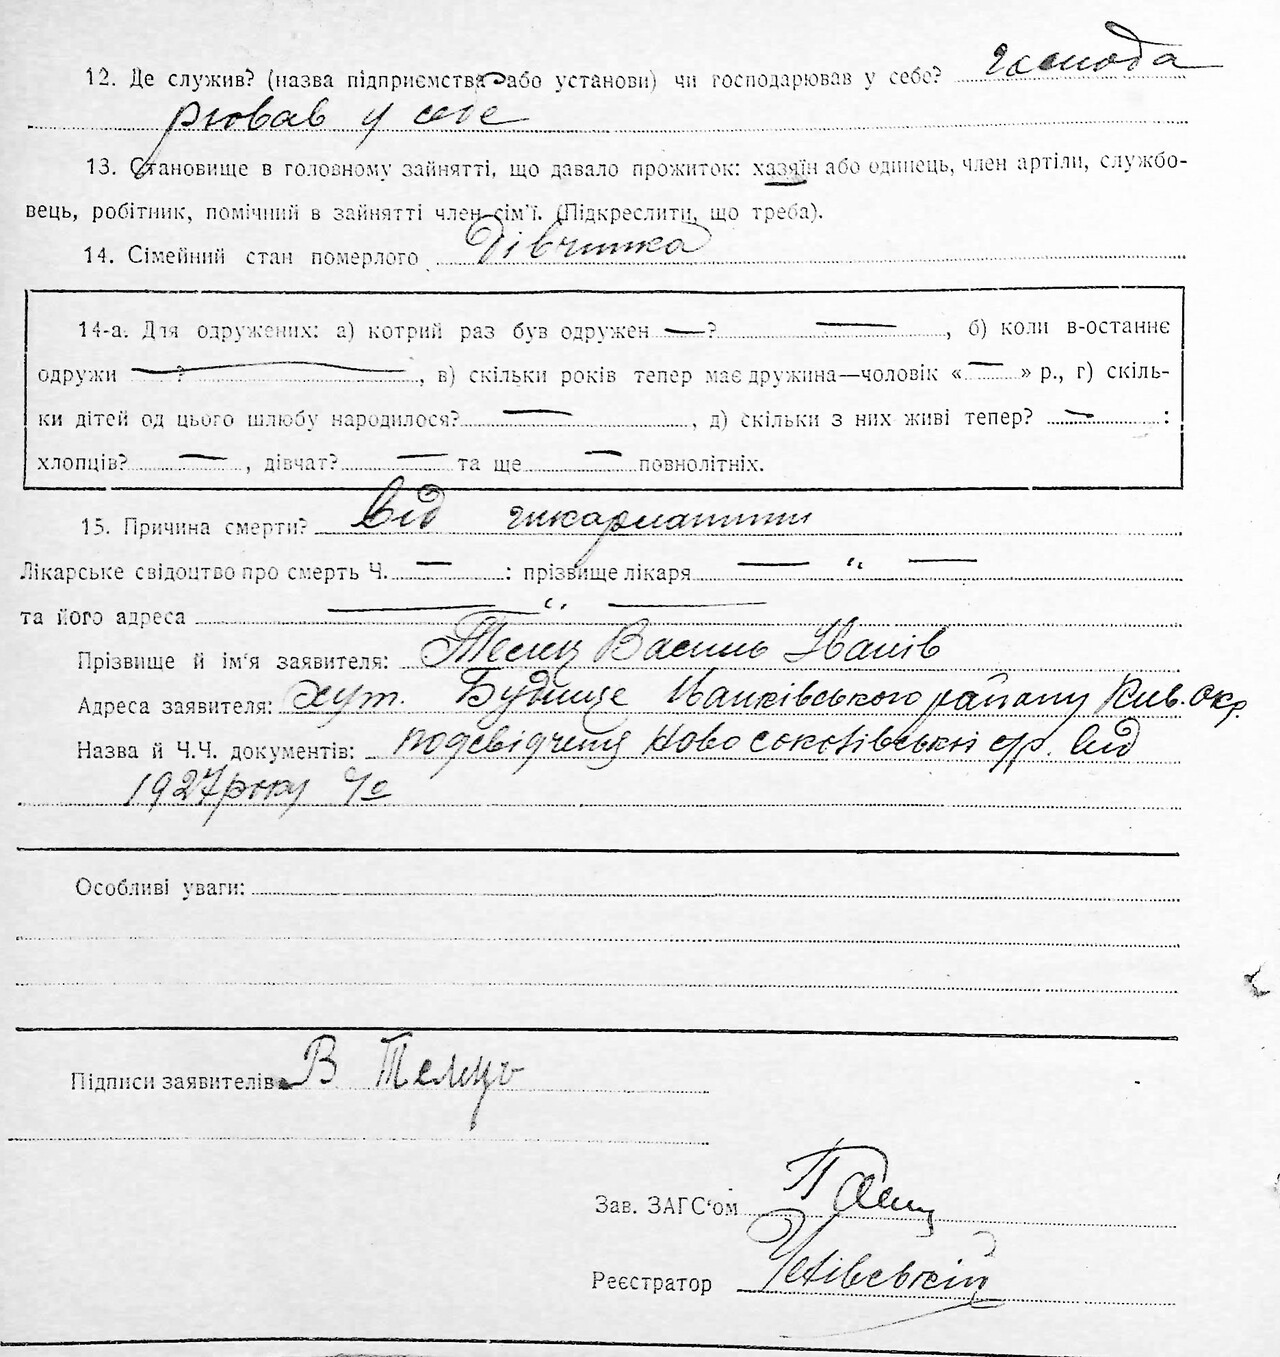 12. Де служив? (назва підприємства або установи) чи господарював у себе? господа
рював у себе
13. Становище в головному зайнятті, що давало прожиток: хазяїн або одинець, член артіли, службо-
вець, робітник, помічний в зайнятті член сім'ї. (Підкреслити, що треба).
14. Сімейний стан померлого Дівчинка
14-а. Для одружених: а) котрий раз був одружен —? —, б) коли в-останнє
одружи —?, в) скільки років тепер має дружина—чоловік «—» р., г) скіль-
ки дітей од цього шлюбу народилося? —, д) скільки з них живі тепер? — :
хлопців? —, дівчат? — та ще — повнолітніх.
15. Причина смерти? Від
Лікарське свідоцтво про смерть Ч. — : прізвище лікаря — " —
та його адреса — " —
Прізвище й ім'я заявителя: Телец Василь Іванів
Адреса заявителя: хут. Будище Іванківського району Київ. Окр.
Назва й Ч.Ч. документів: посвідчення с/р. від
1927 року Ч.
Особливі уваги:
Підписи заявителів В Телець
Зав. ЗАГС'ом
Реєстратор